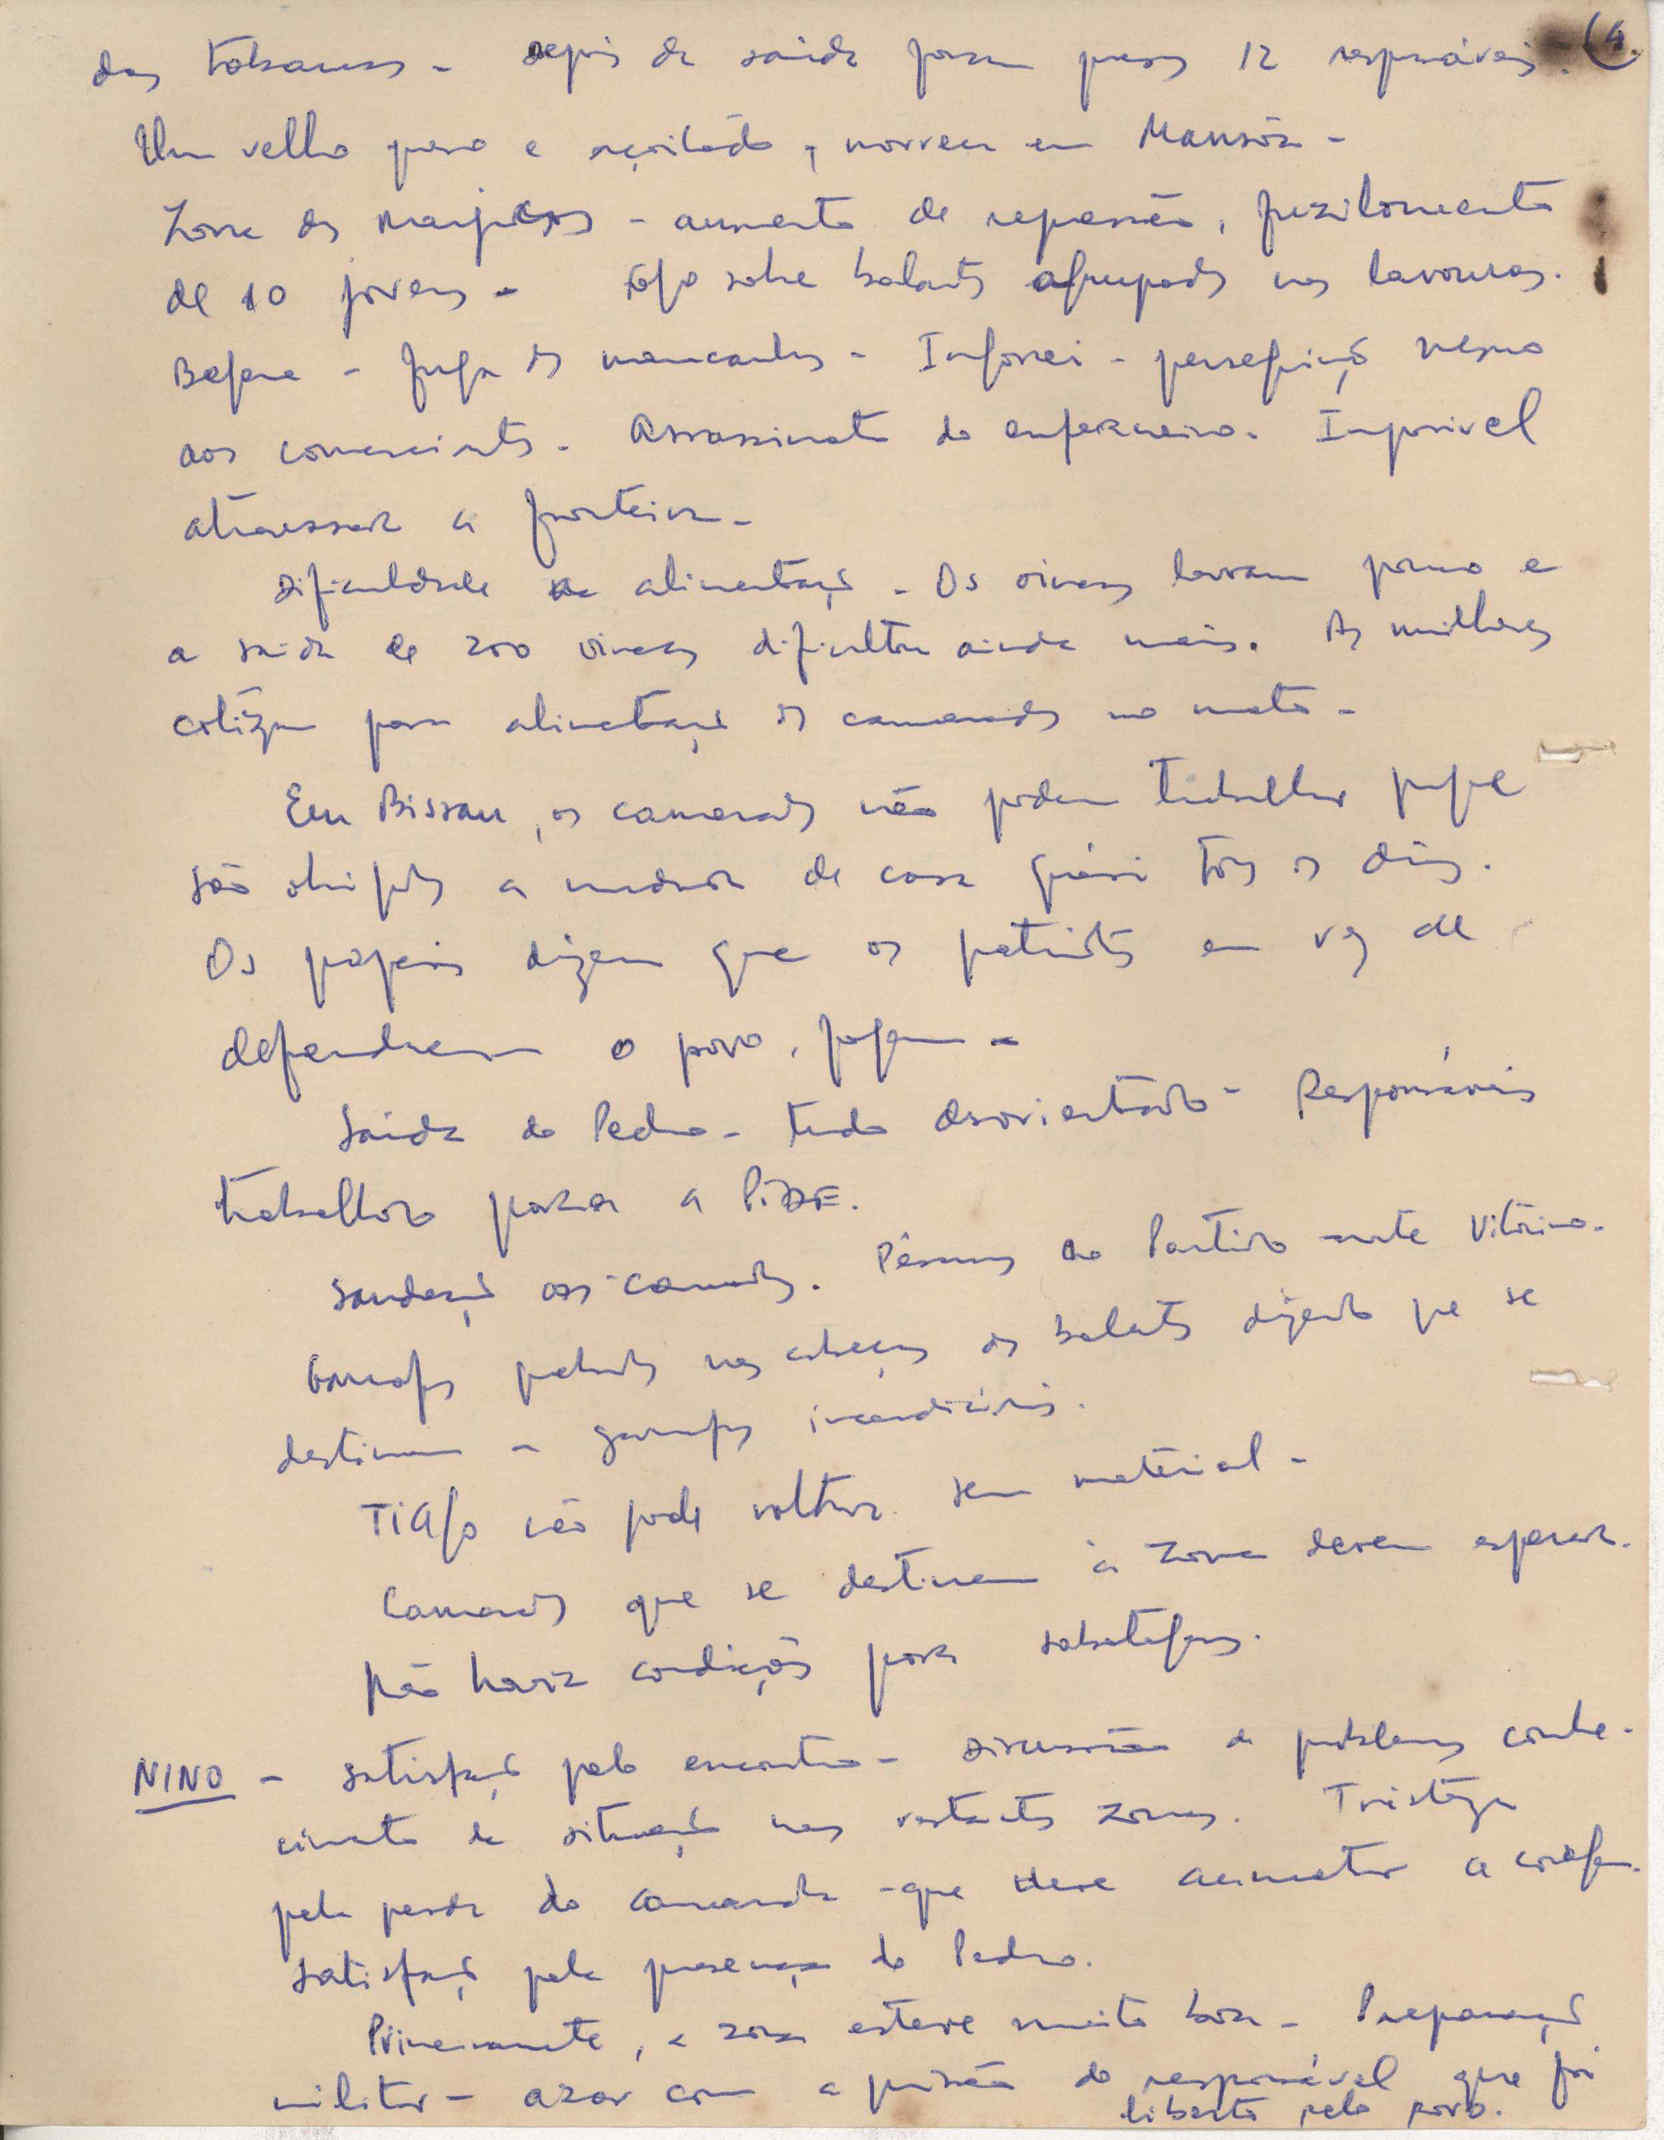 das tabancas - Depois da saída foram presos 12 responsáveis. (4.
Um velho preso e açoitado, morreu em Mansôa -
Zona dos manjacos - aumento de repressão, fuzilamento
de 10 jovens - Fogo sobre balantas agrupados nas lavouras.
Befene - fuga dos mancanhas - Ingorei - perseguição mesmo
aos comerciantes - Assassinato do enfermeiro. Impossivel
atravessar a fronteira -
Dificuldade de alimentação - Os oincas lavram pouco e
a saída de 200 oincas dificultou ainda mais. As mulheres
cotizam para alimentação dos camaradas no mato -
Em Bissau, os camaradas não podem trabalhar porque
são obrigados a mudar de casa quási todos os dias.
Os papeis dizem que os patriotas em vez de
defenderem o povo, fogem -
Saída do Pedro - tudo desorientado - Responsáveis
trabalhando para a PIDE.
Saudação aos camaradas. Pêsames ao Partido morte Vitorino.
Garrafas partidas nas cabeças dos balantas dizendo que se
destinam - garrafas incendiárias.
Tiago não pode voltar sem material -
Camaradas que se destinam à zona devem esperar.
Não havia condições para sabotagens.
NINO - Satisfação pelo encontro - Discussão de problemas conhe-
cimento da situação nas restantes zonas. Tristeza
pela perda do camarada - que deve aumentar a coragem.
Satisfação pela presença do Pedro.
Primeiramente, a zona esteve muito boa - Preparação
militar - azar com a prisão do responsável que foi
liberto pelo povo.